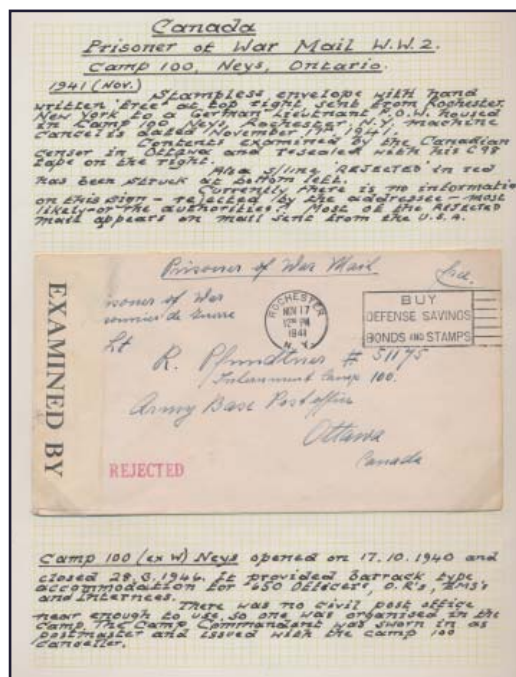 Canada
Prisoner of War Mail W.W.2.
Camp 100, Neys, Ontario.
1941 (Nov.)
Stampless envelope with hand
written 'Free' at top right sent from Rochester,
New York to a German Lieutenant P.O.W. housed
in Camp 100 Neys. Rochester, N.Y. machine
cancel is dated November 17th, 1941.
Contents examined by the Canadian
Censor in Ottawa and resealed with his C98
tape on the right.
Also S/line 'REJECTED' in red
has been struck at bottom left.
Currently there is no information
on this sign - rejected by the addressee - most
likely - or the authorities? Most of the REJECTED
mail appears on mail sent from the U.S.A.
Prisoner of War Mail
Free
EXAMINED BY
risoner of War
risonnier de Guerre
ROCHESTER
NOV 17
12 PM
1941
N.Y.
BUY
DEFENSE SAVINGS
BONDS AND STAMPS
Lt R. Pfundtner # 51175
Internment Camp 100.
Army Base Post office
Ottawa
Canada
REJECTED
Camp 100 (ex W) Neys opened on 17.10.1940 and
closed 28.3.1946. It provided barrack type
accommodation for 650 Officers, O.R's, EMS's
and Internees.
There was no civil post office
near enough to use, so one was organised in the
camp. The Camp Commandant was sworn in as
postmaster and issued with the camp 100
canceller.